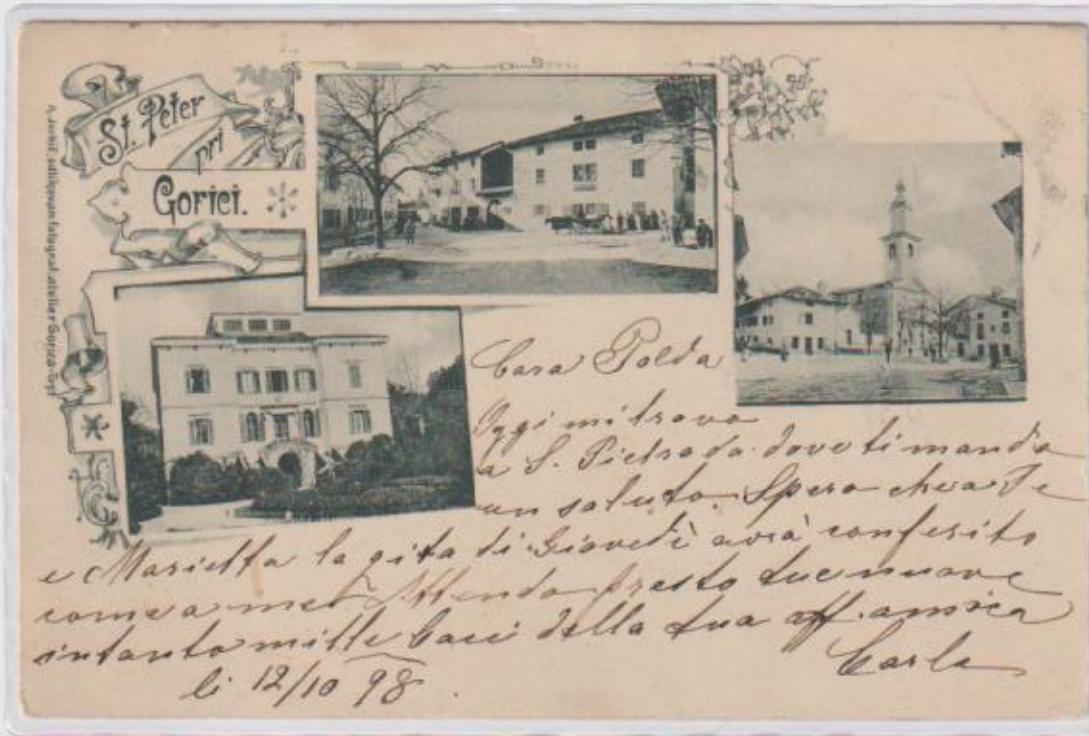 St. Peter
pri
Gorici.
A. Jerkič, fotograf. atelier Gorica
Cara Polda
Oggi mi trovo
a S. Pietro da dove ti mando
un saluto. Spero che a Te
e Marietta la gita di Giovedì avrà conferito
come a me. Attendo presto tue nuove
intanto mille baci della tua aff. amica
Carla
li 12/10 98.